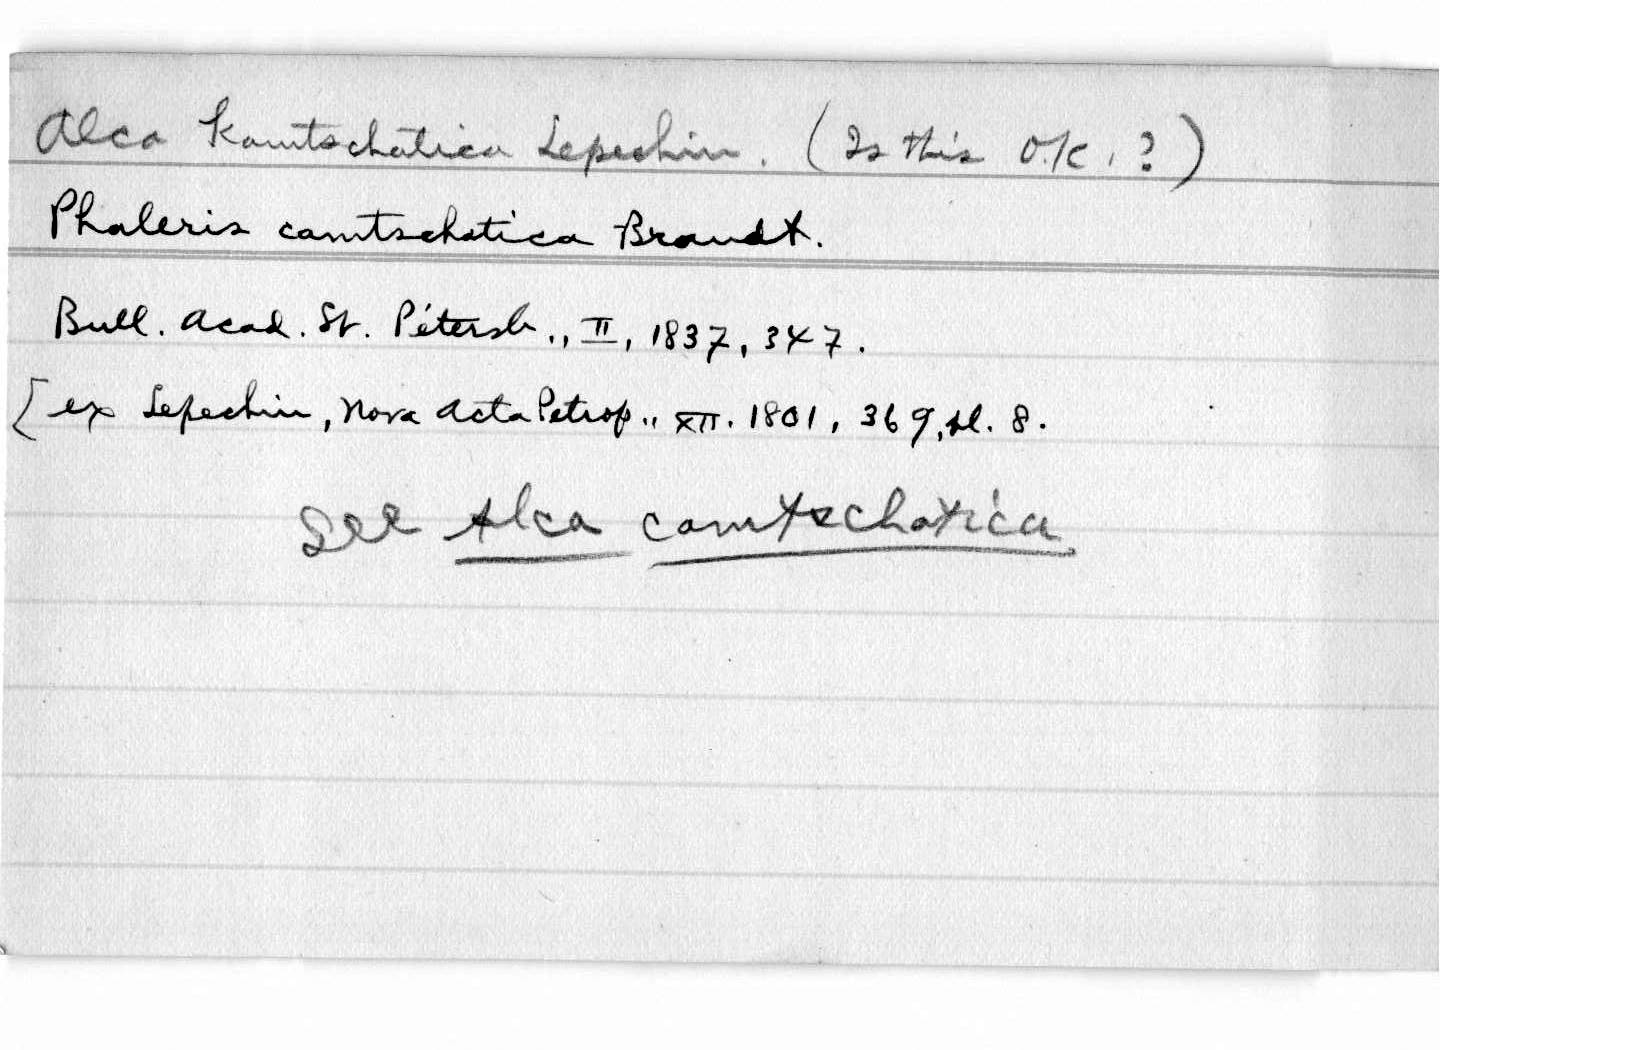 Alca Kamtschatica Lepechin. (Is this O.K.?)
Phaleris camtschatica Brandt.
Bull. Acad. St. Pétersb., II, 1837, 347.
[ex Lepechin, Nova Acta Petrop., XII. 1801, 369, pl. 8.
See Alca camtschatica